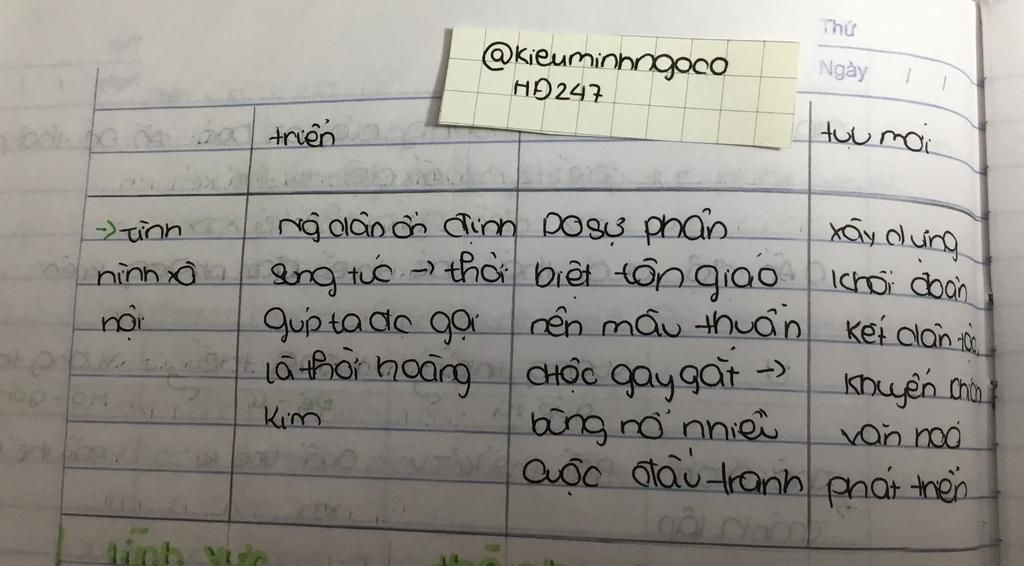 Thứ
@kieuminhngoco
Ngày / /
HĐ247
triển
tựu mới
→ tình
ninh xã
nội
ng dân ổn định
sung túc → thời
gupta đc gọi
là thời hoàng
kim
Do sự phân
biệt tôn giáo
nên mâu thuẫn
chộc gay gắt →
bùng nổ nhiều
cuộc đấu tranh
xây dựng
khối đoàn
kết dân tộc
khuyến chân
văn hoá
phát triển
lĩnh vực